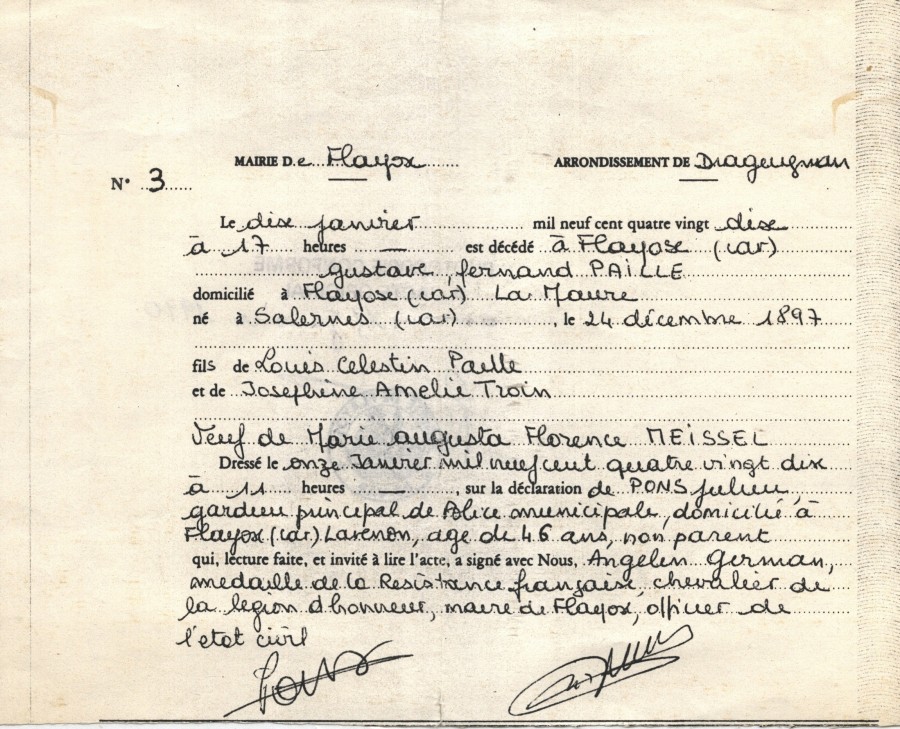 MAIRIE De Flayosc
ARRONDISSEMENT DE Draguignan
N° 3
Le dix janvier mil neuf cent quatre vingt dix
à 17 heures — est décédé à Flayosc (var)
gustave, fernand PAILLE
domicilié à Flayosc (var) La Maure
né à Salernes (var), le 24 décembre 1897
fils de Louis Celestin Paille
et de Josephine Amelie Troin
Veuf de Marie augusta Florence MEISSEL
Dressé le onze Janvier mil neuf cent quatre vingt dix
à 11 heures —, sur la déclaration de PONS julien,
gardien principal de Police municipale, domicilié à
Flayosc (var) Larenon, age de 46 ans, non parent
qui, lecture faite, et invité à lire l'acte, a signé avec Nous, Angelin German,
medaille de la Resistance française, chevalier de
la legion d'honneur, maire de Flayosc, officier de
l'etat civil